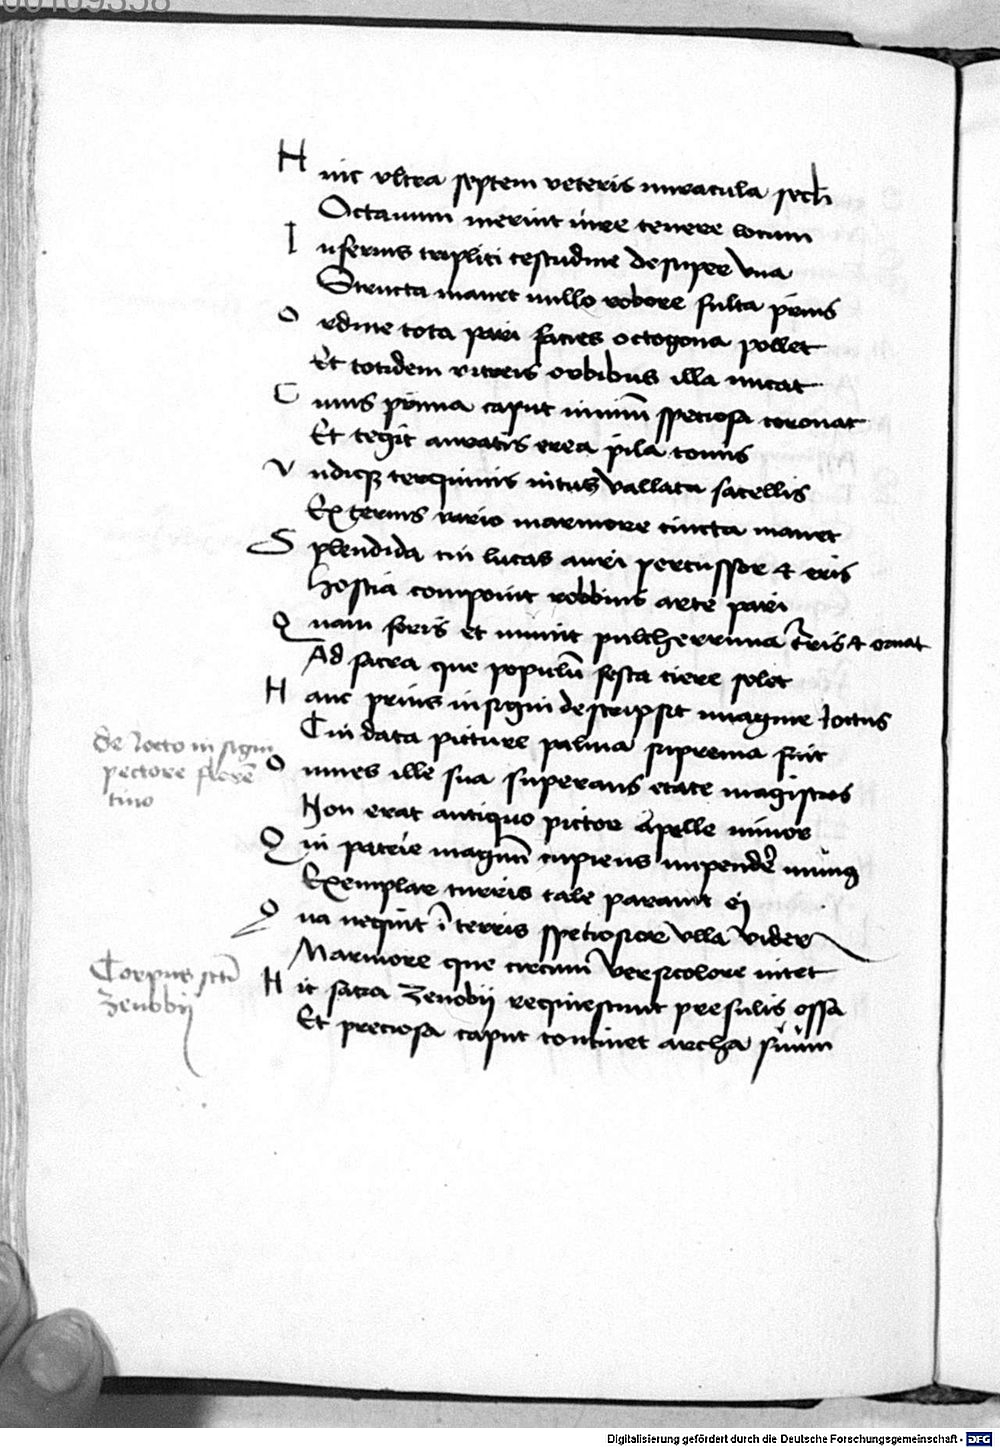 00109338
Huic ultra septem veteris miracula secli
Octauum meruit iure tenere locum
Inferius triplici testudine desuper vna
Structa manet nullo robore fulta prius
Ordine tota pari facies octogona pollet
Et totidem vitreis orbibus illa micat
Cuius prima caput nimium speciosa coronat
Et tegit auratis erea pila conus
Vndique terquinis intus vallata sacellis
Externis vario marmore cincta manet
Splendida cui lucas auri percussor et eris
hostia componit robbius arte pari
Quam foris et munit pulcherrima turris et ornat
Ad sacra que populum festa ciere solet
Hanc prius insigni descripsit imagine Joctus
Cui data picture palma suprema fuit
Omnes ille sua superans etate magistros
Non erat antiquo pictor apelle minor
Qui patrie magnum cupiens impendere munus
Exemplar turris tale parauit ei
Qua nequit in terris speciosior vlla videri
Marmore que circum versicolore nitet
Hic sacra Zenobij requiescunt presulis ossa
Et preciosa caput continet archa suum
de Jocto insigni
pectore floren
tino
Corpus scti
Zenobij
Digitalisierung gefördert durch die Deutsche Forschungsgemeinschaft - DFG